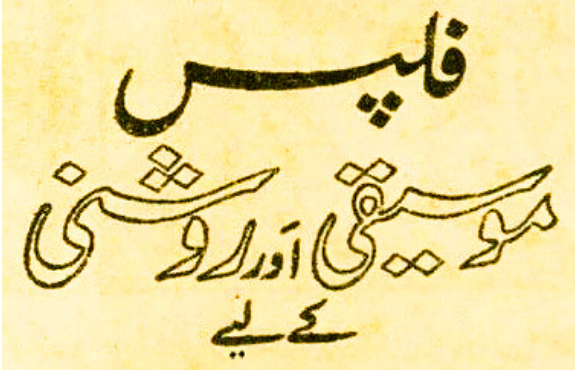 فلپس
موسیقی اَور روشنی
کے لیے